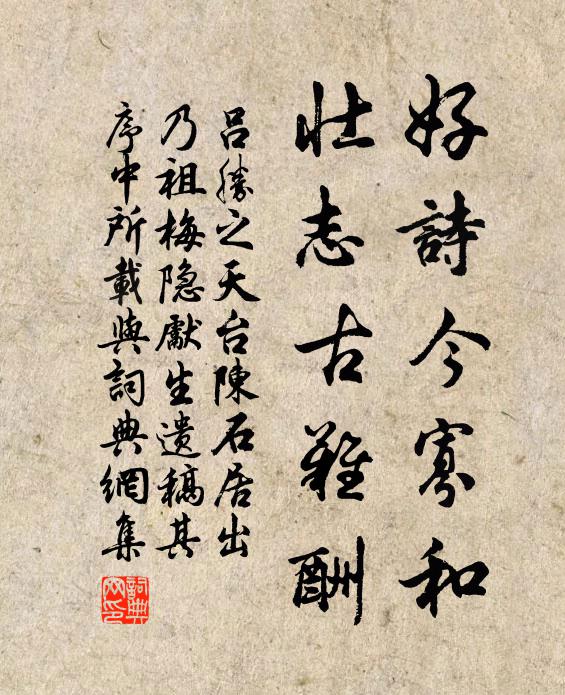 好詩今寡和
壯志古難酬
呂勝之天台陳石居出
乃祖梅隐獻生遺稿其
序中所載與詞典網集
詞典网印